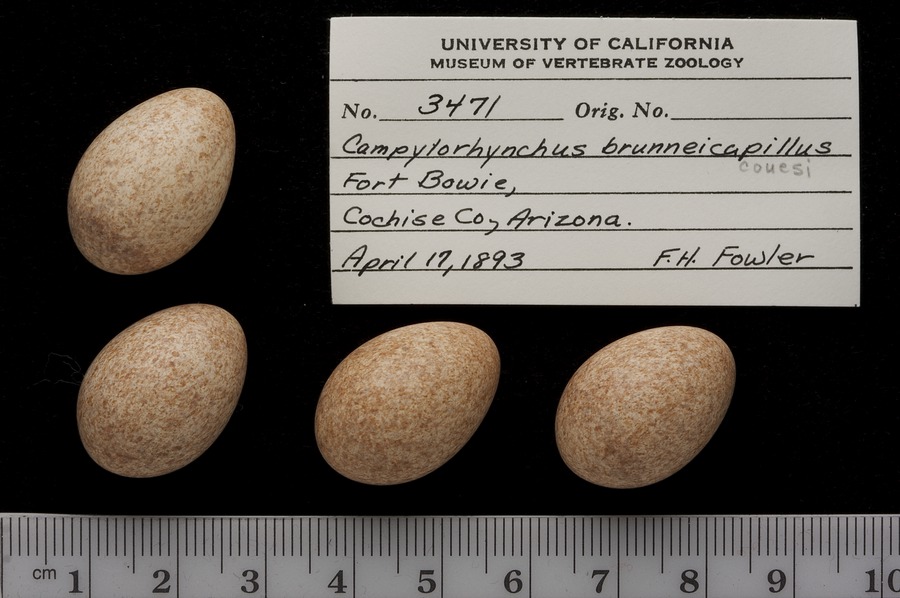 UNIVERSITY OF CALIFORNIA
MUSEUM OF VERTEBRATE ZOOLOGY
No. 3471 Orig. No.
Campylorhynchus brunneicapillus
couesi
Fort Bowie,
Cochise Co, Arizona.
April 17, 1893 F.H. Fowler
cm 1 2 3 4 5 6 7 8 9 10